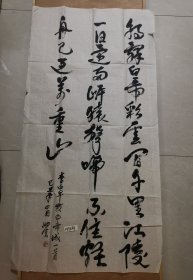 朝辭白帝彩雲間千里江陵
一日還兩岸猿聲啼不住輕
舟已過萬重山
李白早發白帝城一首